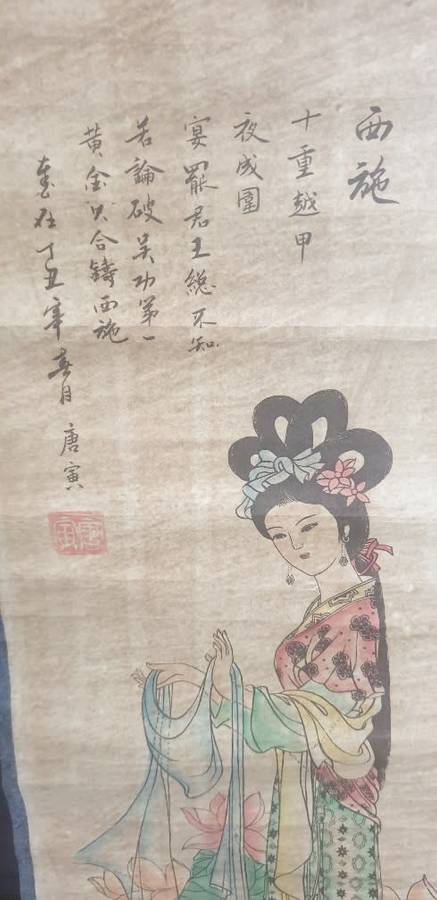 西施
十重越甲
夜成圍
宴罷君王總不知
若論破吴功第一
黄金只合鑄西施
畫在丁丑年春月 唐寅
唐寅